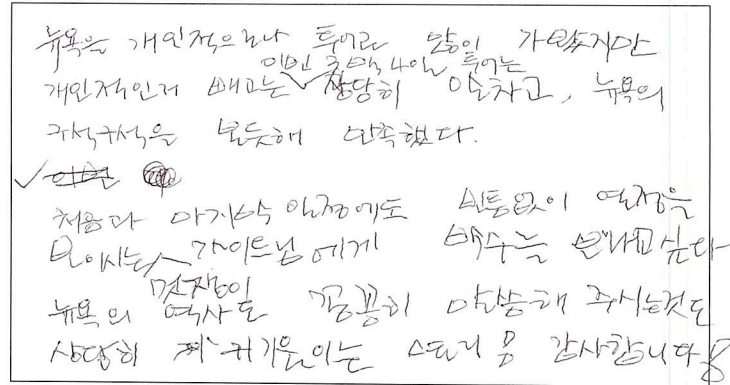 뉴욕을 개인적으로나 투어로 많이 가봤지만
개인적인거 빼고는 이번 3박4일 투어는 상당히 알차고, 뉴욕의
구석구석을 본듯해 만족했다.
처음과 마지막 일정에도 빈틈없이 열정을
보이시는 가이드님에게 박수를 보내고 싶다
뉴욕의 역사도 꼼꼼히 말씀해 주시는것도
상당히 귀기울이는 스토리 감사합니다